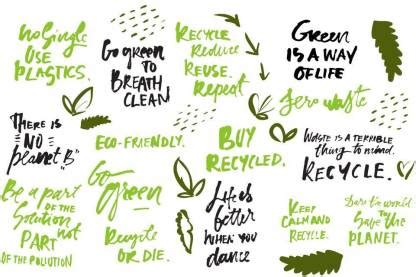 No Single
USE
PLASTICS.
Go green
TO
BREATH
CLEAN
RECYCLE
Reduce
REUSE.
Repeat
Green
IS A WAY
OF LIFE
Zero waste
THERE IS
"NO"
planet "B"
ECO-FRIENDLY.
BUY
RECYCLED.
WASTE IS A TERRIBLE
thing to mind.
RECYCLE.
Be a part
OF THE
Solution
not
PART
OF THE POLLUTION
Go
Green
Recycle
OR DIE.
Life is
better
WHEN YOU
dance
KEEP
CALM AND
RECYCLE.
Dare the world
TO
Save the
PLANET.